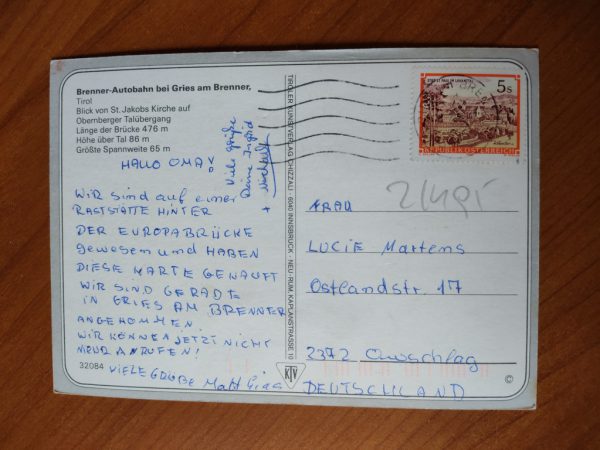 Brenner-Autobahn bei Gries am Brenner,
Tirol
Blick von St. Jakobs Kirche auf
Obernberger Talübergang
Länge der Brücke 476 m
Höhe über Tal 86 m
Größte Spannweite 65 m
HALLO OMA!
WIR SIND auf einer
RASTSTÄTTE HINTER
DER EUROPABRÜCKE
gewesen und HABEN
DIESE KARTE GEKAUFT
WIR SIND GERADE
IN GRIES AM BRENNER
ANGEKOMMEN
WIR KÖNNEN JETZT NICHT
MEHR ANRUFEN!
VIELE GRÜßE
Viele Grüße
Deine Ingrid
32084
TIROLER KUNSTVERLAG CHIZZALI · 6040 INNSBRUCK - NEU-RUM, KAPLANSTRASSE 10
KTV
5s
REPUBLIK ÖSTERREICH
FRAU
LUCIE Martens
Ostlandstr. 17
2372 Owschlag
DEUTSCHLAND
©